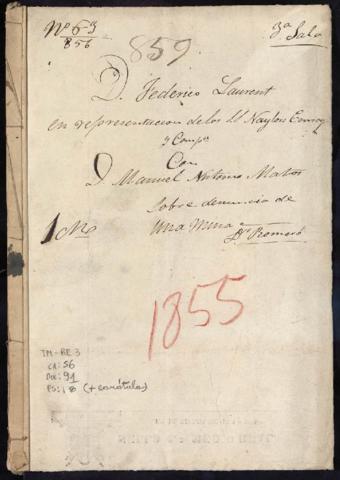 Nº 63
856
859.
3ª Sala
D. Federico Laurent
en representacion de los SS Naylors Conroy
y Compª
Con
D. Manuel Antonio Matos
sobre denuncia de
una mina
Dr Romero
1855
TM-RE 3
CA: 56
DOC: 91
FS: 18 (+ carátulas)